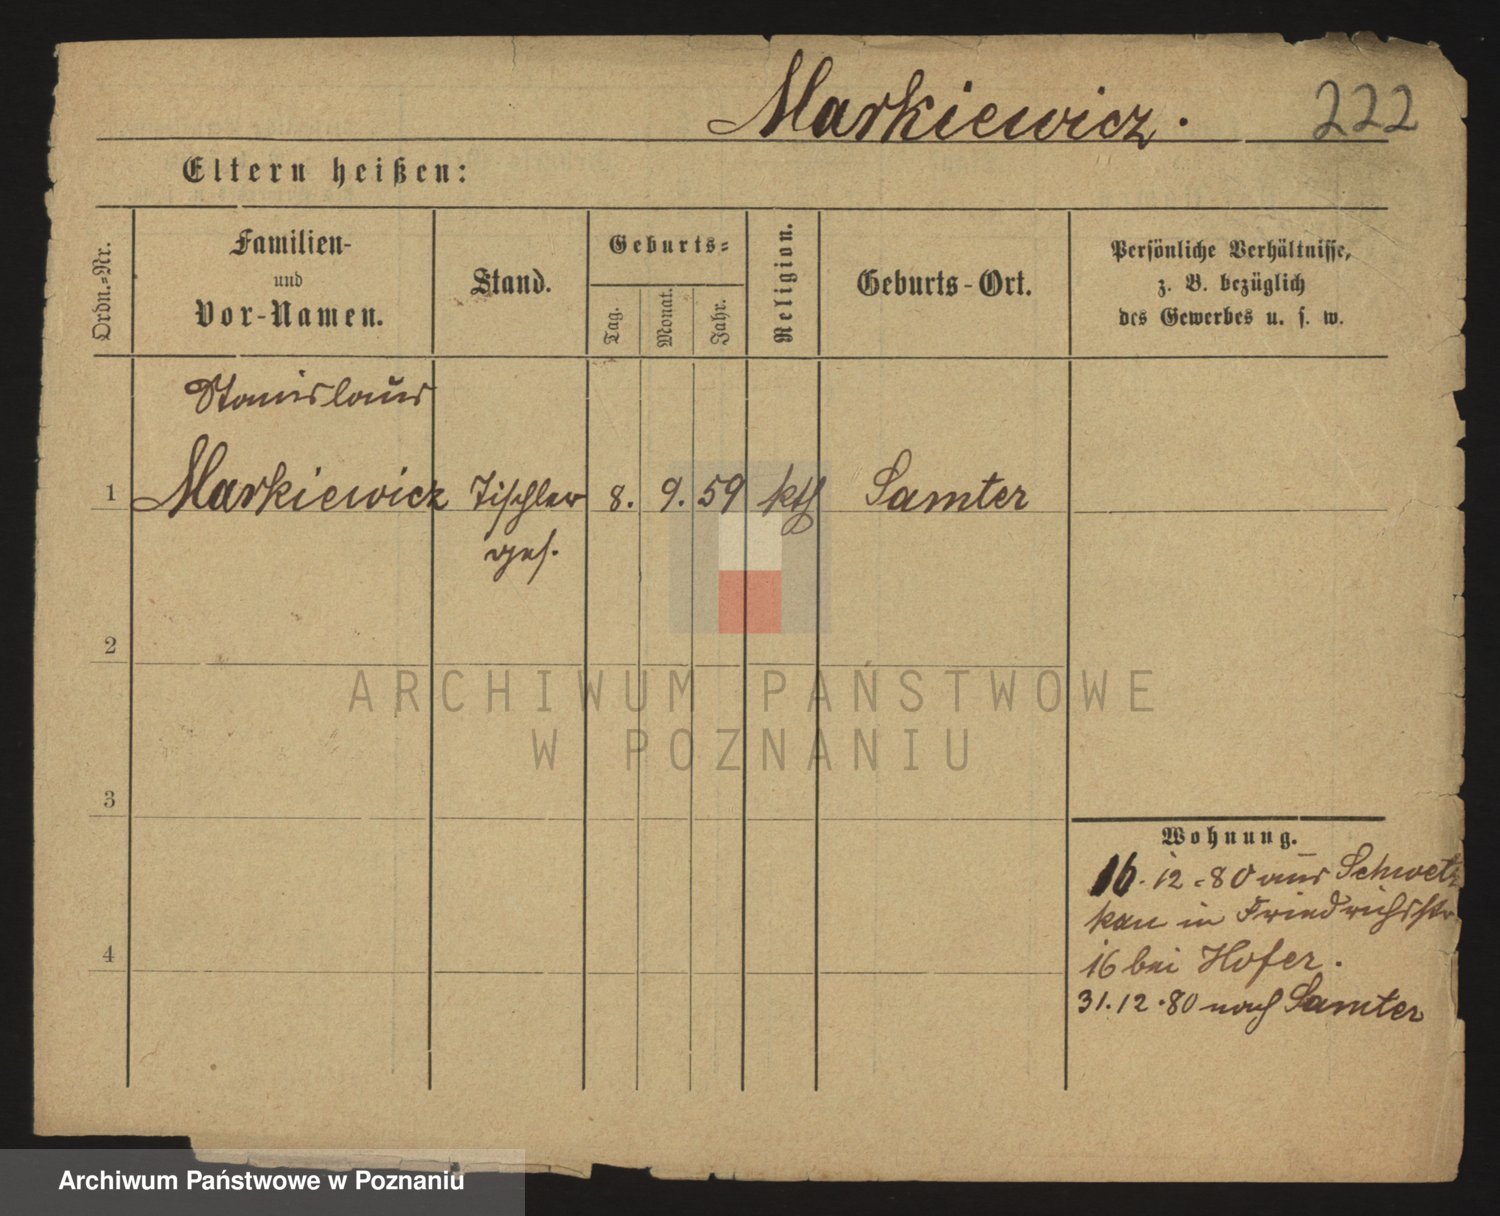 Markiewicz.
222
Eltern heißen:
Ordn.-Nr.
Familien-
und
Vor-Namen.
Stand.
Geburts-
Tag.
Monat.
Jahr.
Religion.
Geburts-Ort.
Persönliche Verhältnisse,
z. B. bezüglich
des Gewerbes u. s. w.
Stanislaus
1 Markiewicz Tischler 8. 9. 59 kth Samter
ges.
2
ARCHIWUM PAŃSTWOWE
W POZNANIU
3
Wohnung.
16.12.80 aus Schwetz
kau in Friedrichsstr.
4
16 bei Hofer.
31.12.80 nach Samter
Archiwum Państwowe w Poznaniu